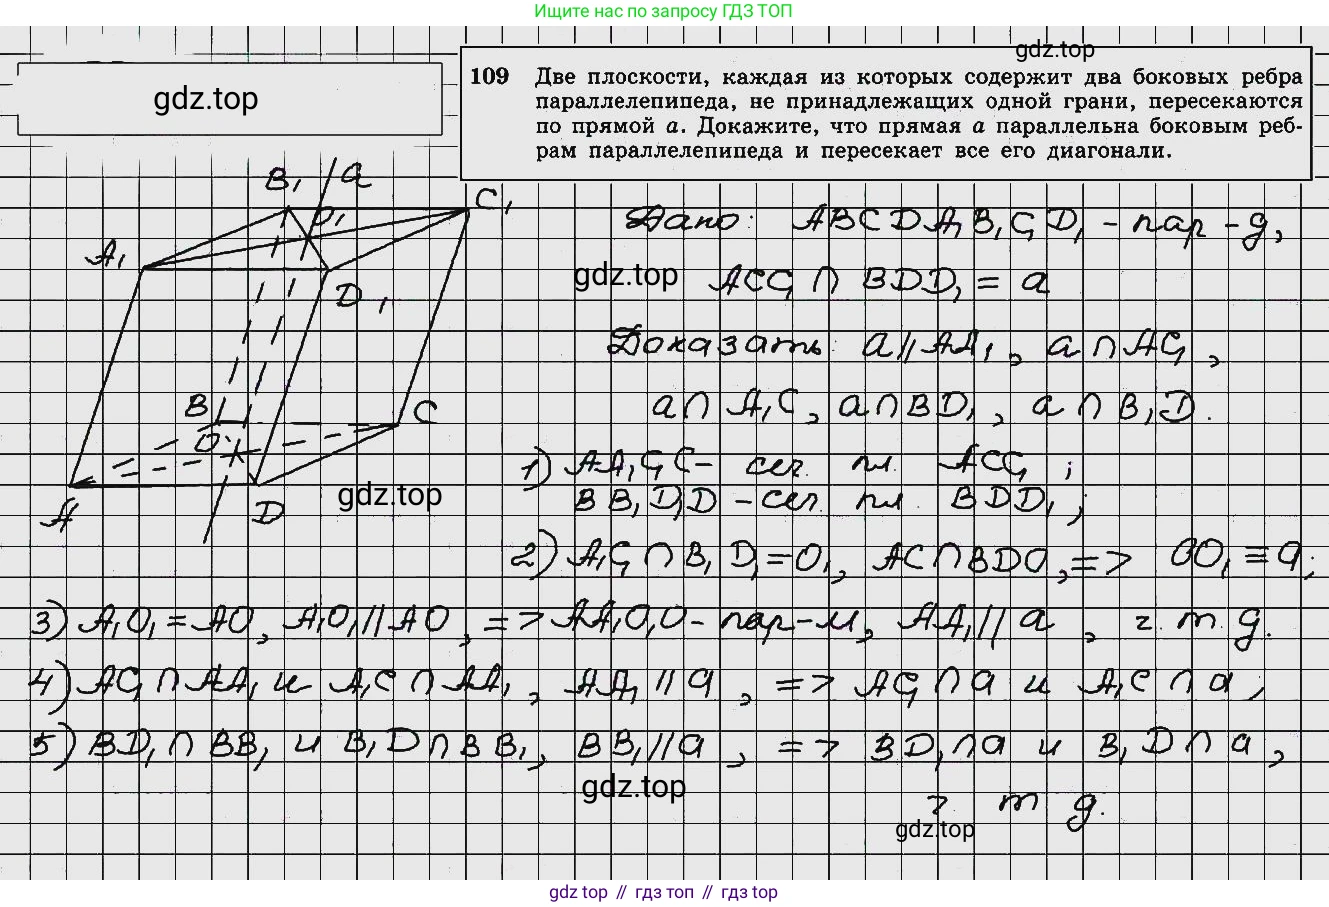 Ищите нас по запросу ГДЗ ТОП
gdz.top
gdz.top
109 Две плоскости, каждая из которых содержит два боковых ребра
параллелепипеда, не принадлежащих одной грани, пересекаются
по прямой a. Докажите, что прямая a параллельна боковым реб-
рам параллелепипеда и пересекает все его диагонали.
B₁ a
O₁ C₁
A₁
D₁
B C
O
A D
gdz.top
Дано: ABCDA₁B₁C₁D₁ - пар-д,
gdz.top
ACC₁ ∩ BDD₁ = a
Доказать: a ∥ AA₁, a ∩ AC₁,
a ∩ A₁C, a ∩ BD₁, a ∩ B₁D.
1) AA₁C₁C - сеч. пл. ACC₁;
BB₁D₁D - сеч. пл. BDD₁;
2) A₁C₁ ∩ B₁D₁ = O₁, AC ∩ BD O, => OO₁ ≡ a;
3) A₁O₁ = AO, A₁O₁ ∥ AO, => AA₁O₁O - пар-м, AA₁ ∥ a, ч. т. д.
4) AC₁ ∩ AA₁ и A₁C ∩ AA₁, AA₁ ∥ a, => AC₁ ∩ a и A₁C ∩ a,
5) BD₁ ∩ BB₁ и B₁D ∩ BB₁, BB₁ ∥ a, => BD₁ ∩ a и B₁D ∩ a,
gdz.top
ч. т. д.
gdz.top
gdz top // гдз топ // gdz top